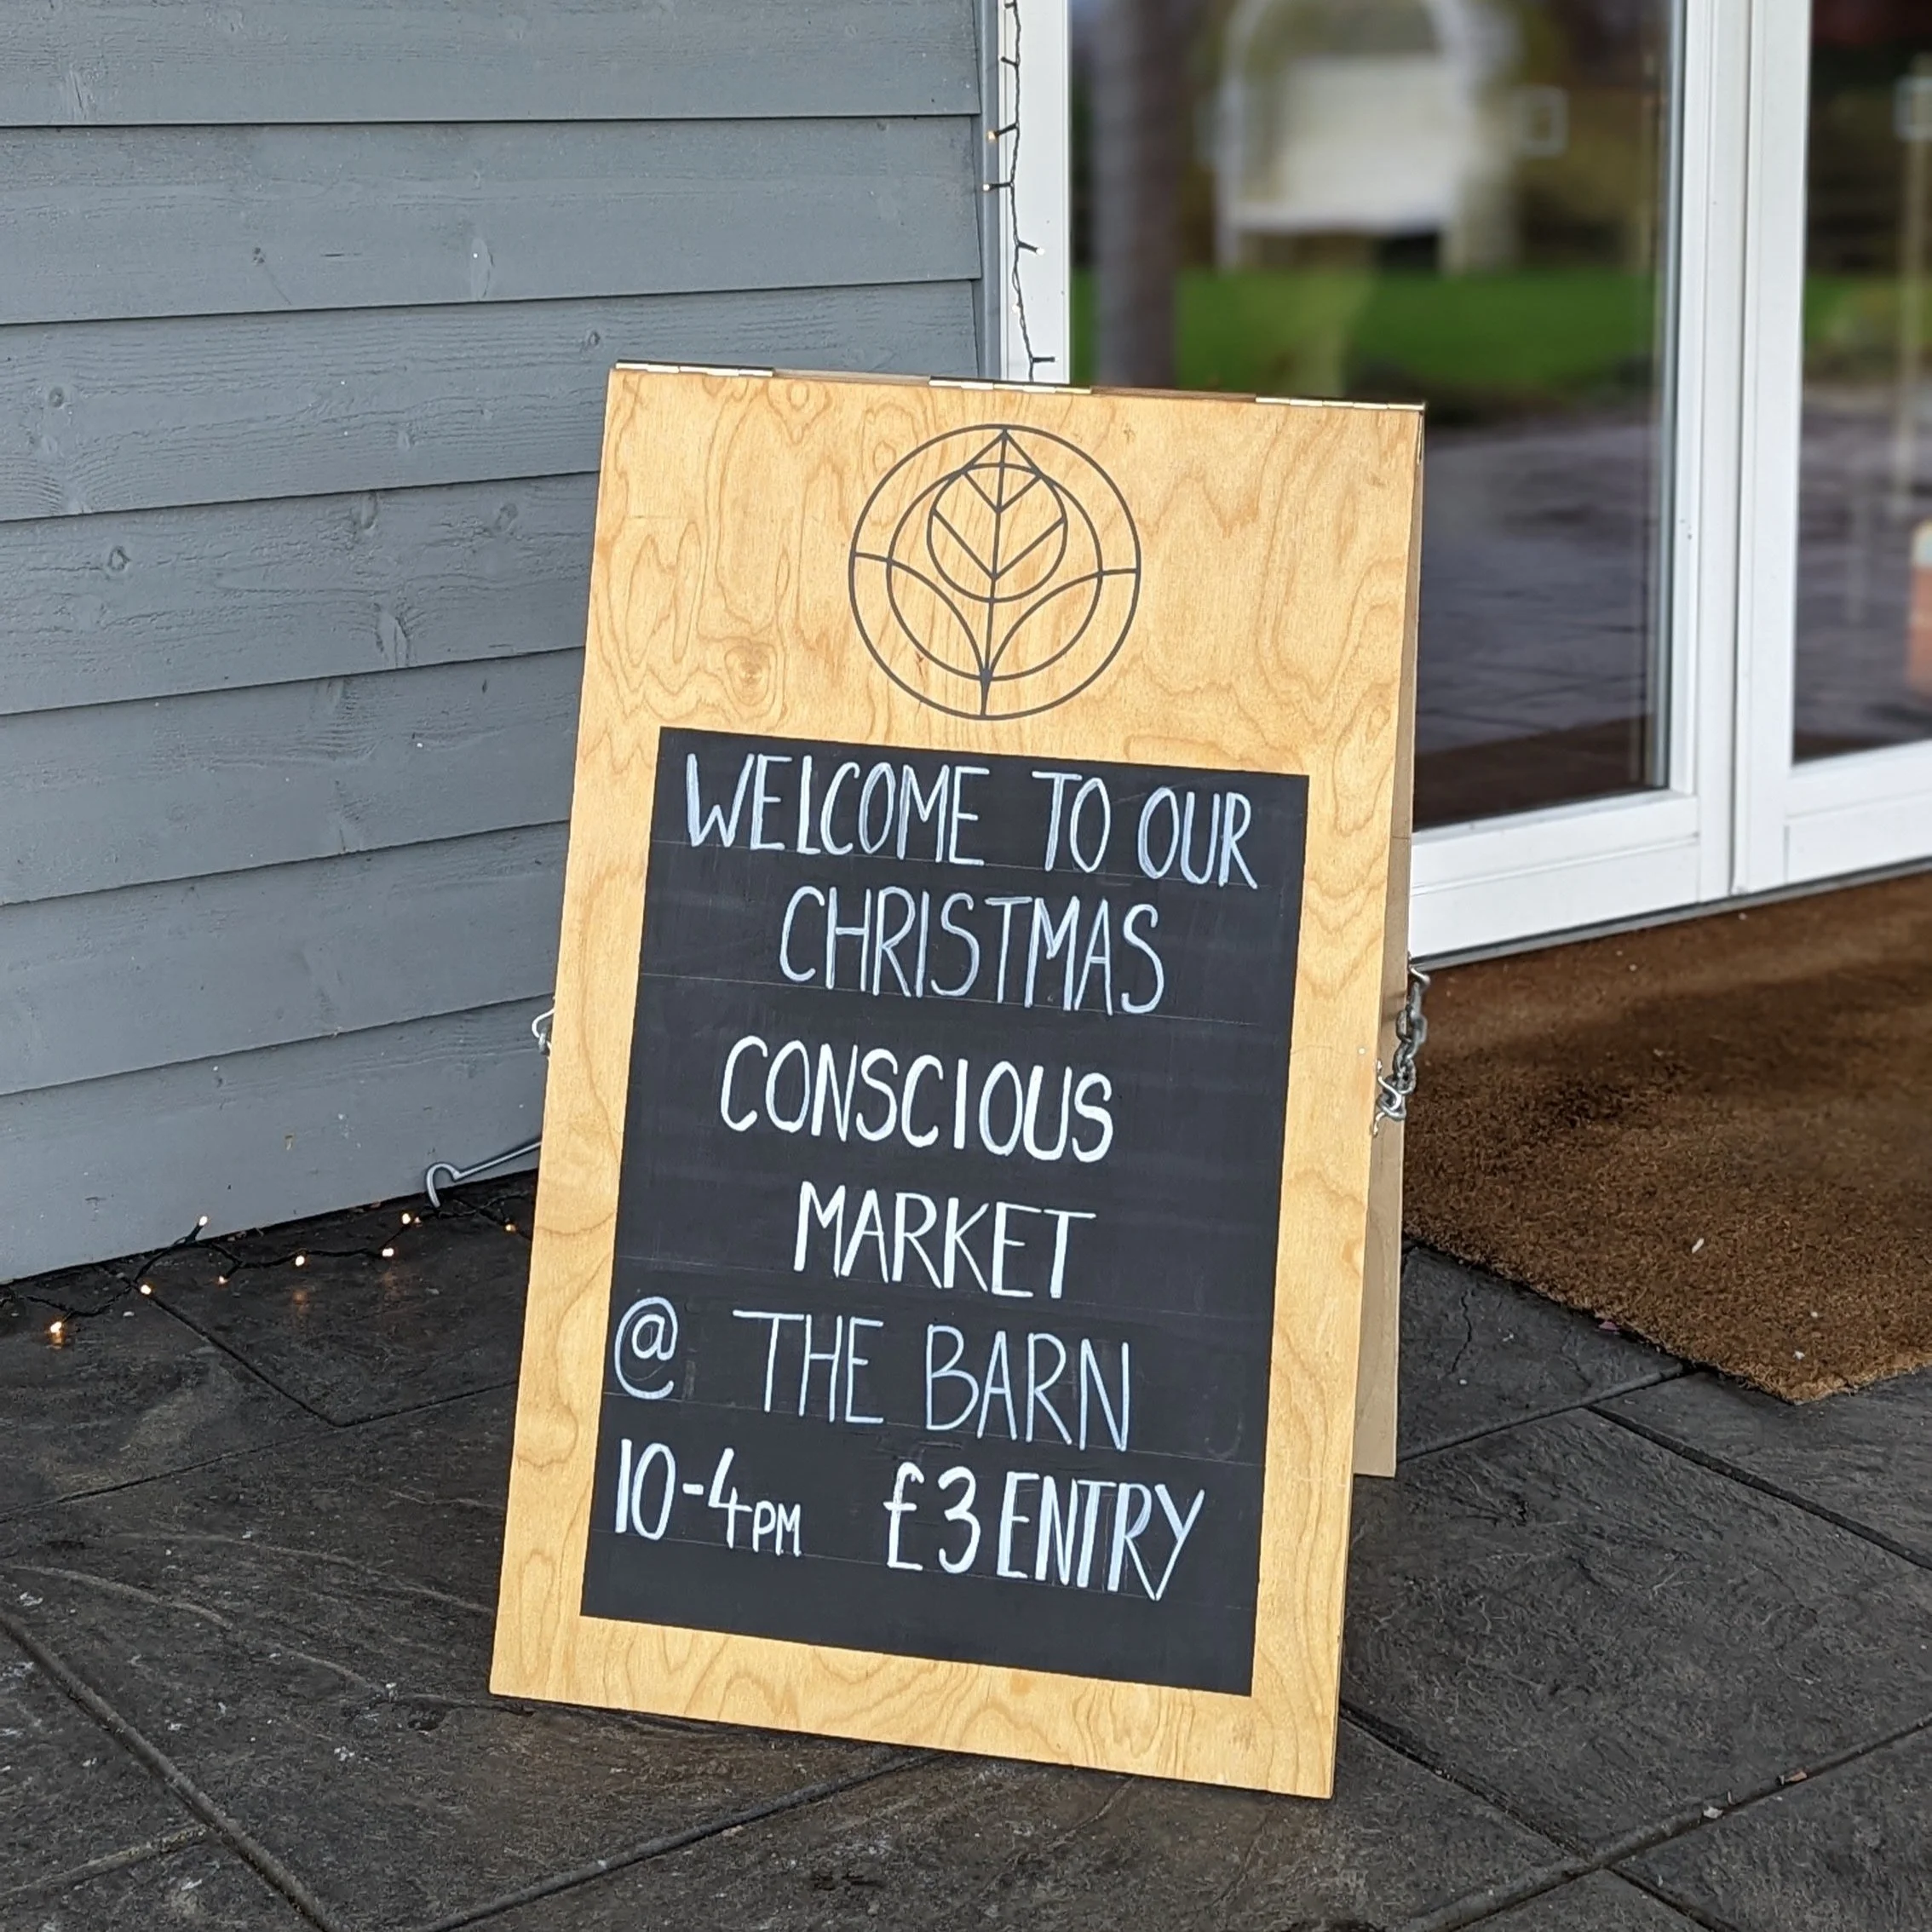 WELCOME TO OUR
CHRISTMAS
CONSCIOUS
MARKET
@ THE BARN
10-4PM £3 ENTRY